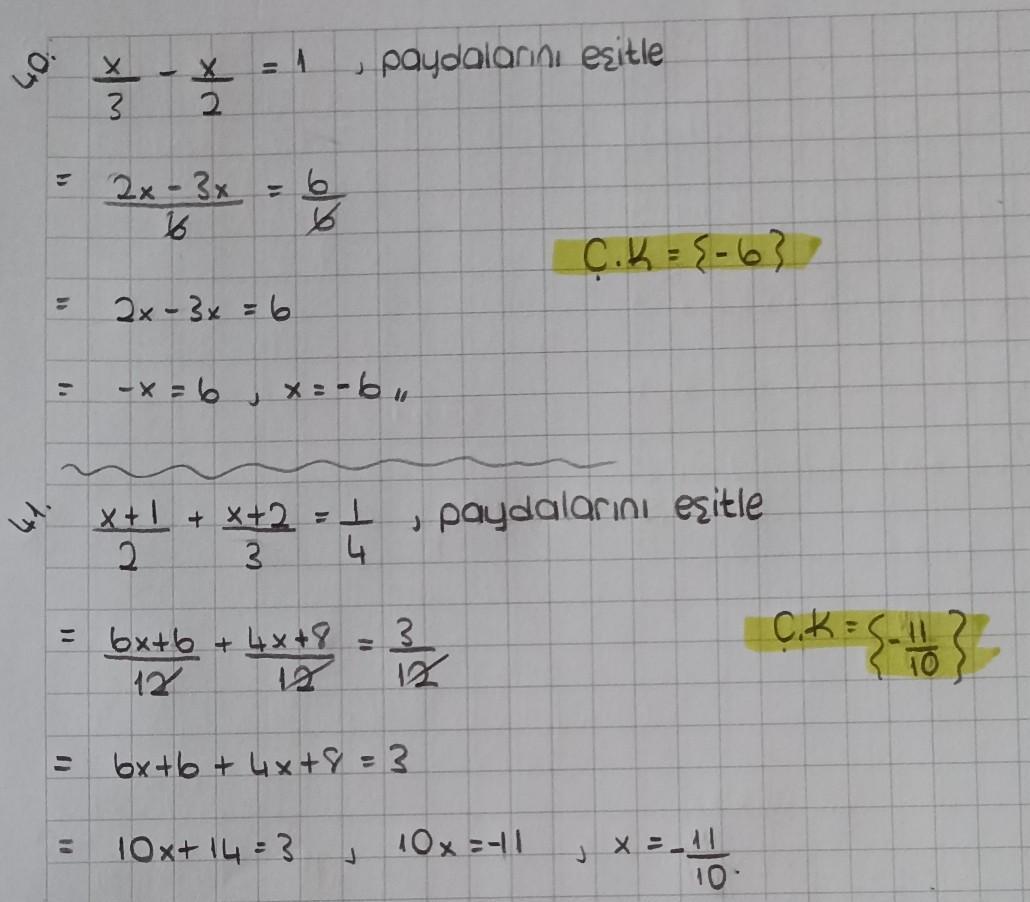 40. x/3 - x/2 = 1 , paydalarını eşitle
= (2x - 3x)/6 = 6/6
Ç.K = {-6}
= 2x - 3x = 6
= -x = 6 , x = -6 „
41. (x+1)/2 + (x+2)/3 = 1/4 , paydalarını eşitle
= (6x+6)/12 + (4x+8)/12 = 3/12
Ç.K = {-11/10}
= 6x+6 + 4x+8 = 3
= 10x+14 = 3 , 10x = -11 , x = -11/10.